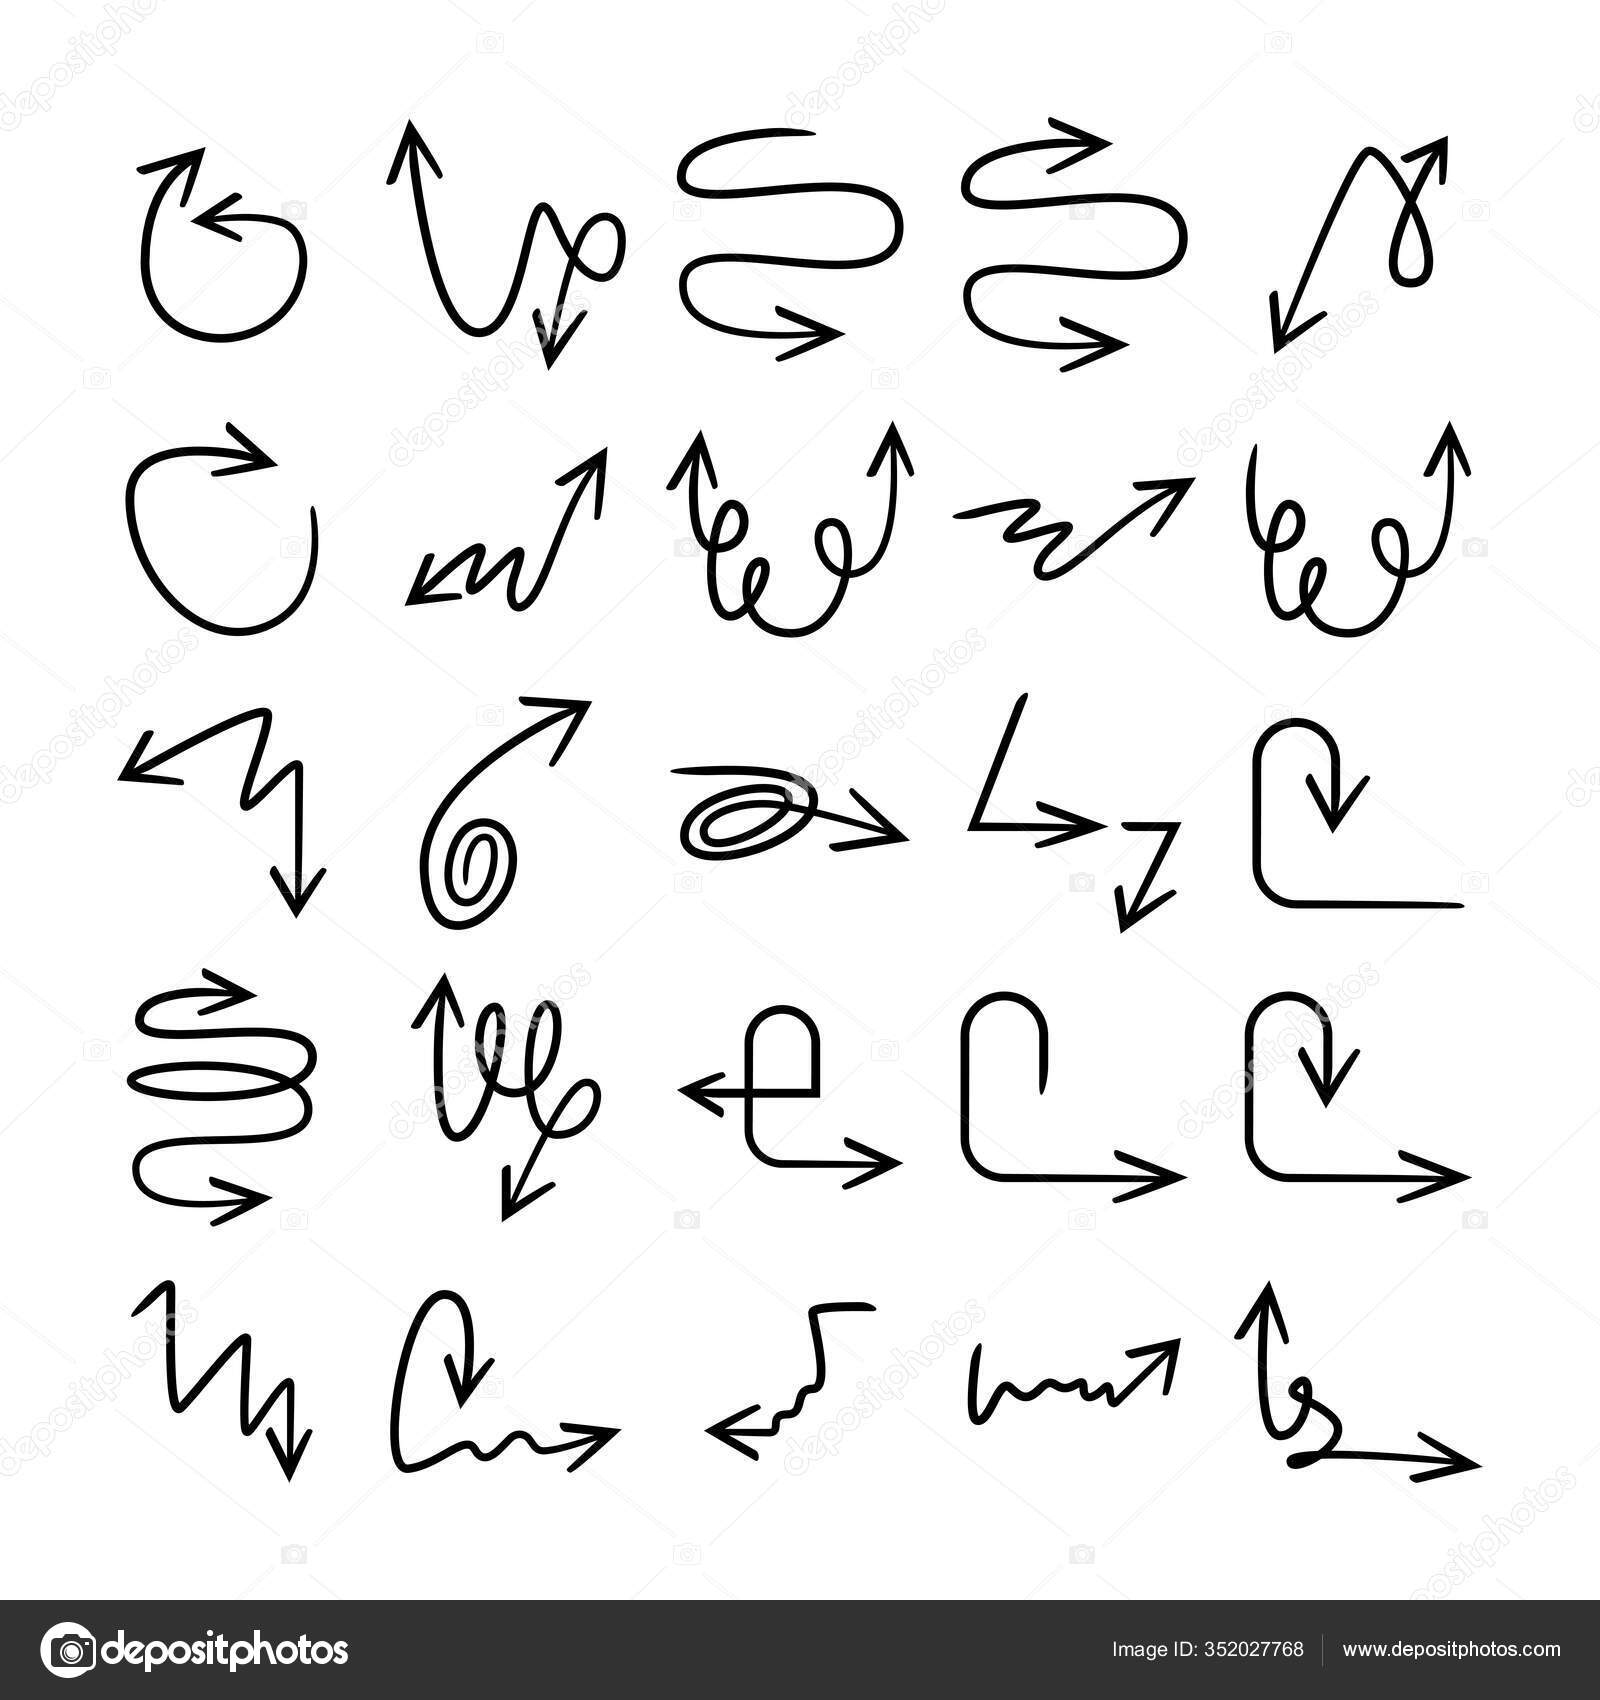 depositphotos
Image ID: 352027768
www.depositphotos.com